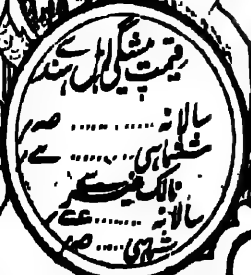 قیمت پیشگی اہل ہند سے
سالانہ ........
ششماہی ........
ممالک غیر سے
سالانہ ........
ششماہی ........